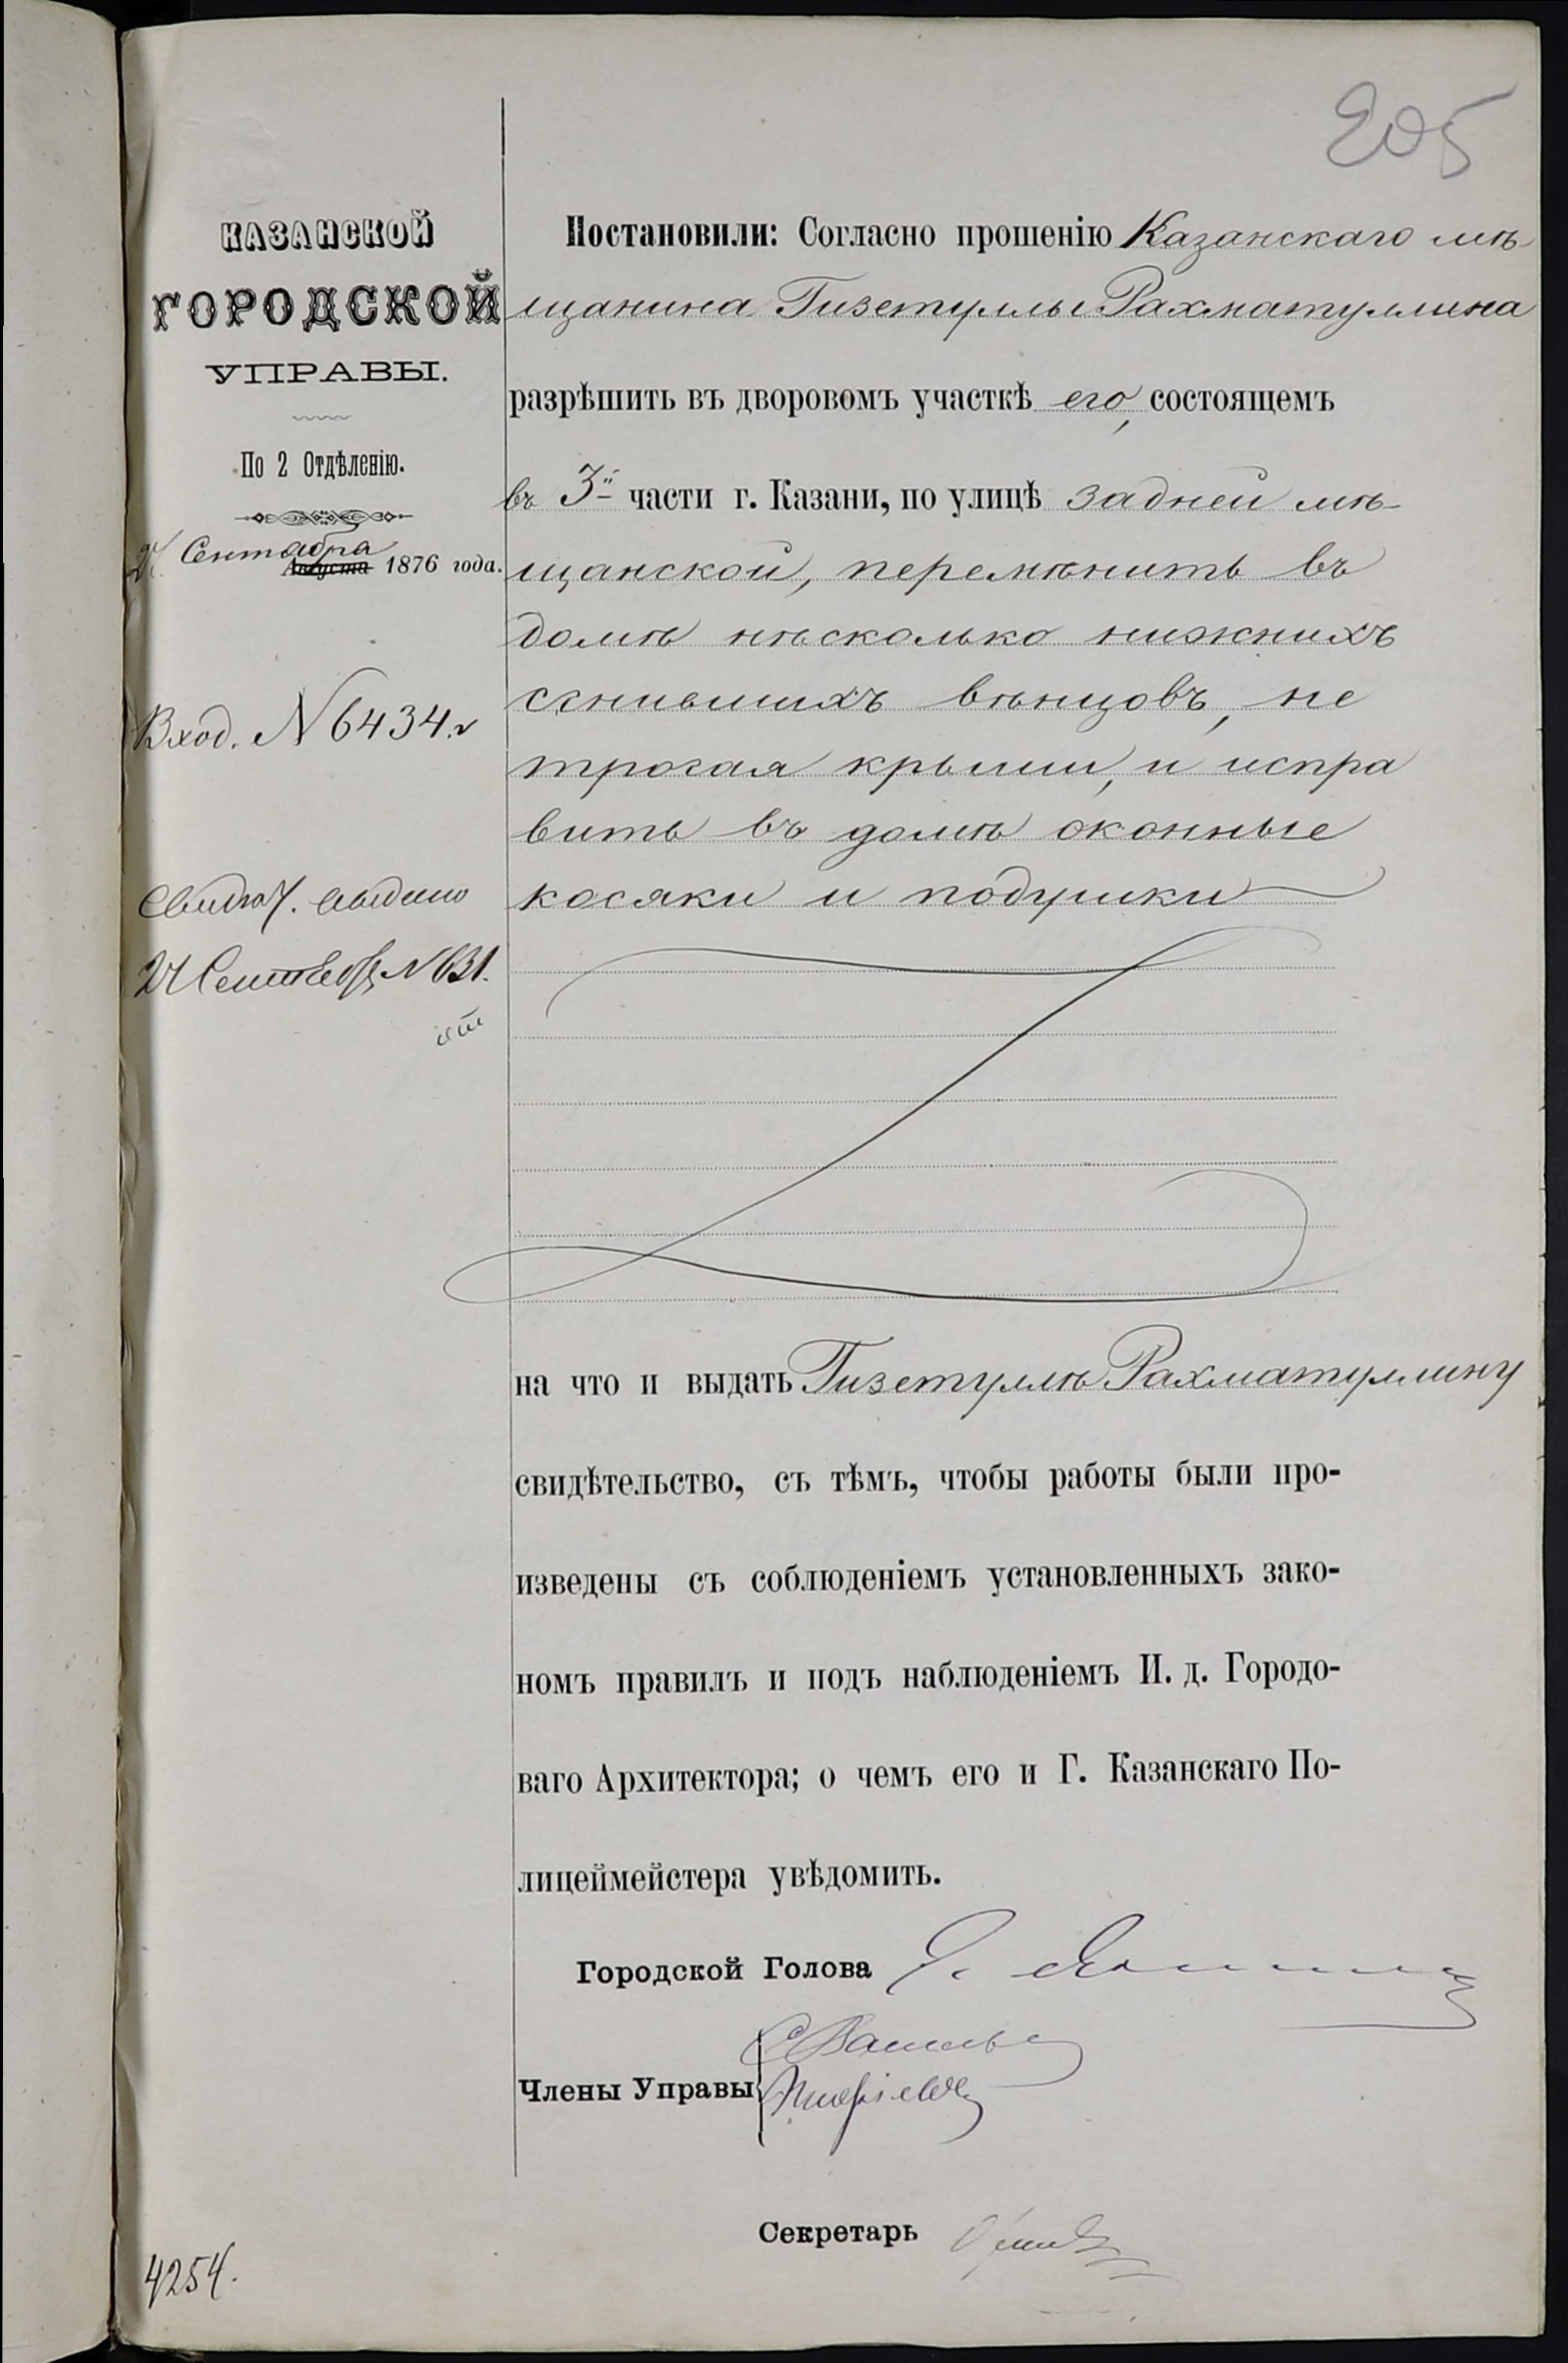 205
КАЗАНСКОЙ
ГОРОДСКОЙ
УПРАВЫ.
По 2 Отдѣленію.
Сентября
Августа 1876 года.
Вход. № 6434.
Свидѣт. выдано
24 Сентября № 631.
Постановили: Согласно прошенію Казанскаго мѣ-
щанина Гизетуллы Рахматуллина
разрѣшить въ дворовомъ участкѣ его, состоящемъ
въ 3й части г. Казани, по улицѣ задней мѣ-
щанской, перемѣнить въ
домѣ нѣсколько нижнихъ
сгнившихъ вѣнцовъ, не
трогая крыши, и испра
вить въ домѣ оконные
косяки и подушки
на что и выдать Гизетуллѣ Рахматуллину
свидѣтельство, съ тѣмъ, чтобы работы были про-
изведены съ соблюденіемъ установленныхъ зако-
номъ правилъ и подъ наблюденіемъ И. д. Городо-
ваго Архитектора; о чемъ его и Г. Казанскаго По-
лицеймейстера увѣдомить.
Городской Голова
Члены Управы
Секретарь
4254.